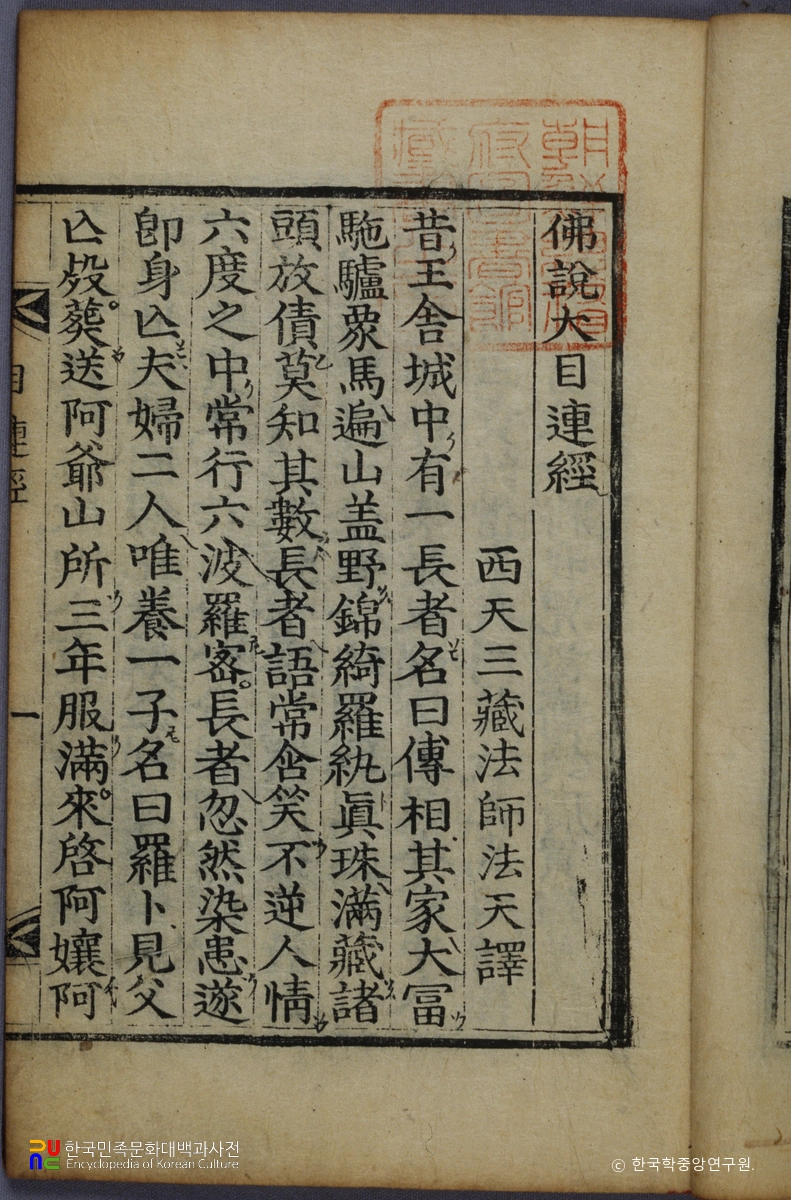 佛說大目連經
西天三藏法師法天譯
昔王舍城中有一長者名曰傳相其家大冨
駞驢象馬遍山盖野錦綺羅紈眞珠滿藏諸
頭放債莫知其數長者語常含笑不逆人情
六度之中常行六波羅宻長者忽然染患遂
即身亾夫婦二人唯養一子名曰羅卜見父
亾歿葬送阿爺山所三年服滿來啓阿孃阿
目連經
一
한국민족문화대백과사전
Encyclopedia of Korean Culture
© 한국학중앙연구원.